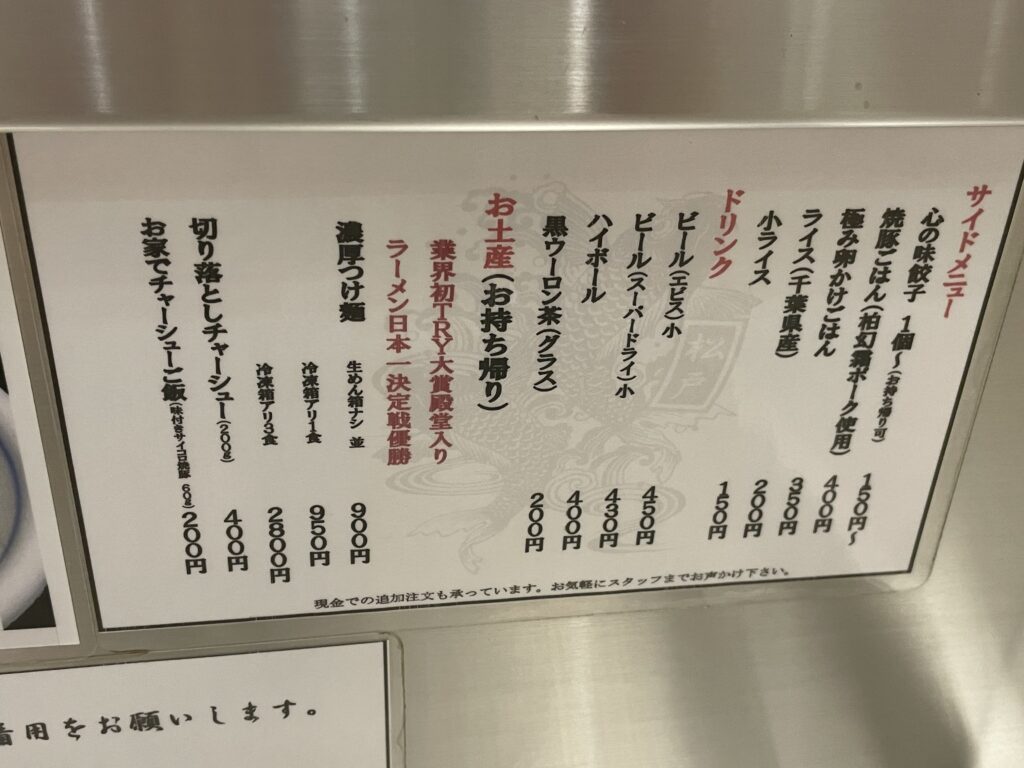 サイドメニュー
心の味餃子 1個～(お持ち帰り可) 150円～
焼豚ごはん(柏幻霜ポーク使用) 400円
極み卵かけごはん 350円
ライス(千葉県産) 200円
小ライス 150円
ドリンク
ビール(エビス)小 450円
ビール(スーパードライ)小 430円
ハイボール 400円
黒ウーロン茶(グラス) 200円
お土産(お持ち帰り)
業界初TRY大賞殿堂入り
ラーメン日本一決定戦優勝
濃厚つけ麺 生めん箱ナシ 並 900円
冷凍箱アリ1食 950円
冷凍箱アリ3食 2800円
切り落としチャーシュー(200g) 400円
お家でチャーシューご飯(味付きサイコロ焼豚 60g) 200円
現金での追加注文も承っています。お気軽にスタッフまでお声かけ下さい。
松戸
着用をお願いします。